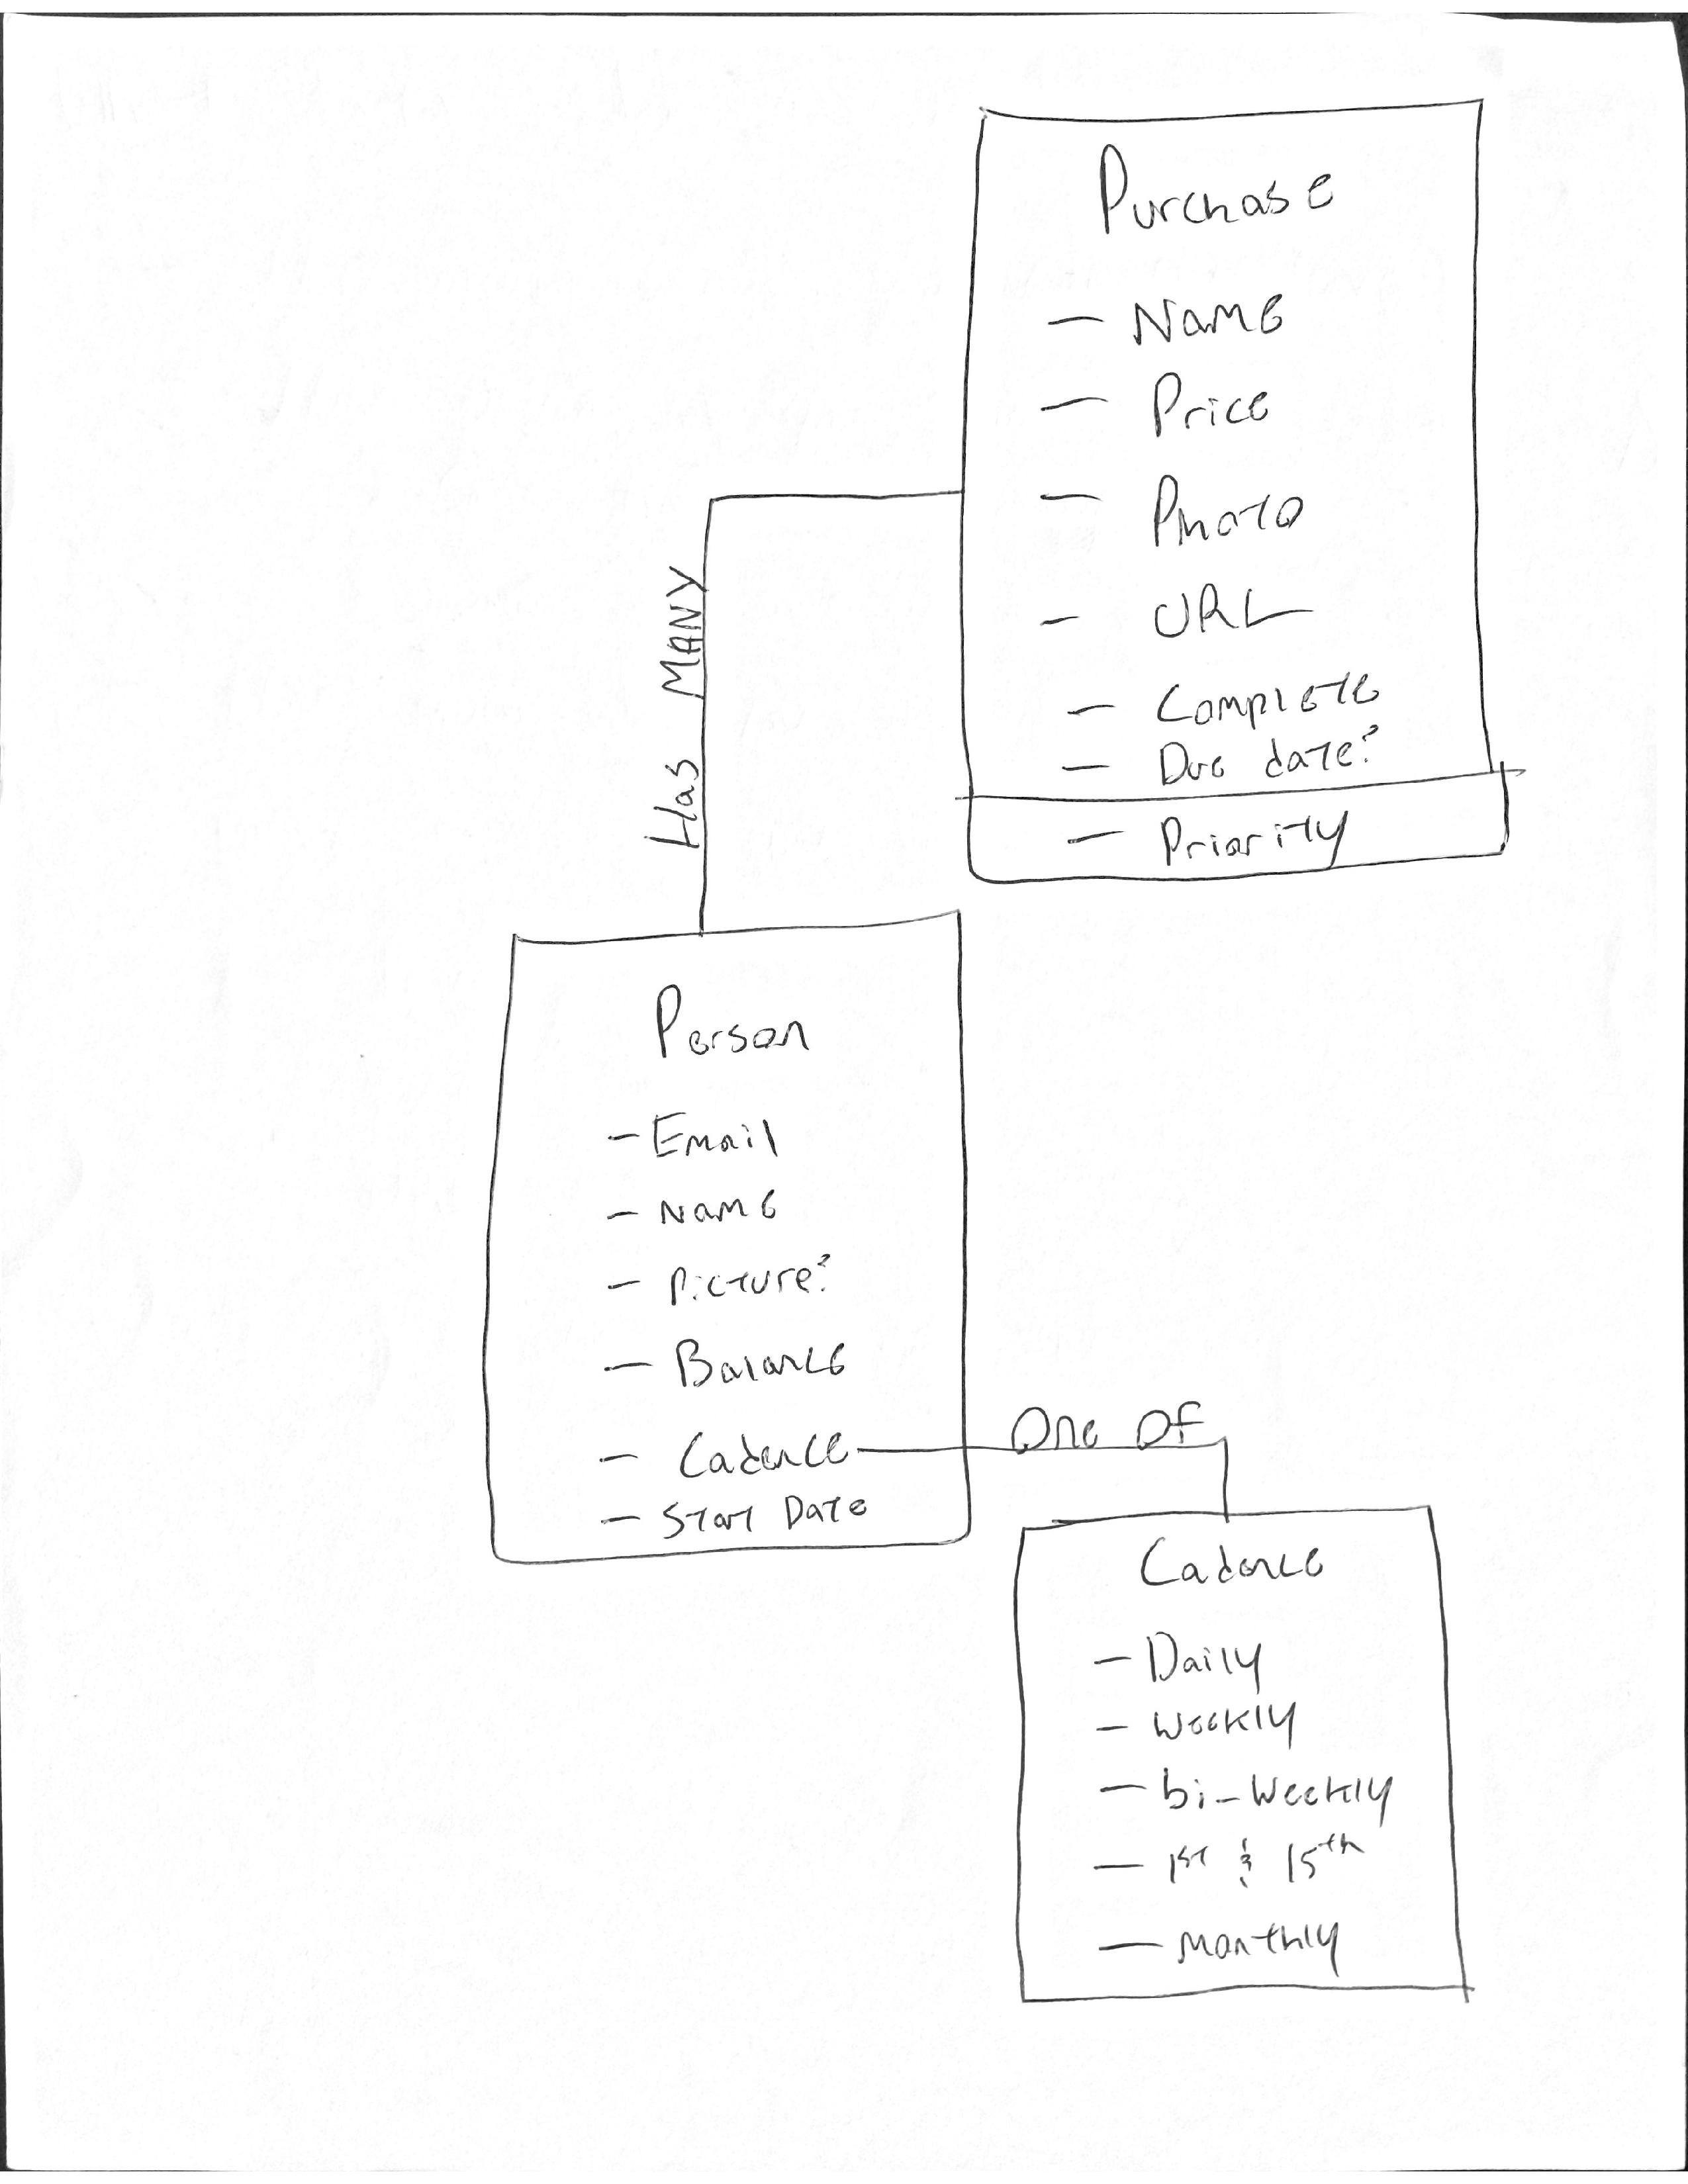 Purchase
- Name
- Price
- Photo
- URL
- Complete
- Due date?
- Priority
Has MANY
Person
- Email
- Name
- Picture?
- Balance
- Cadence
- Start Date
One Of
Cadence
- Daily
- Weekly
- bi-Weekly
- 1st & 15th
- Monthly